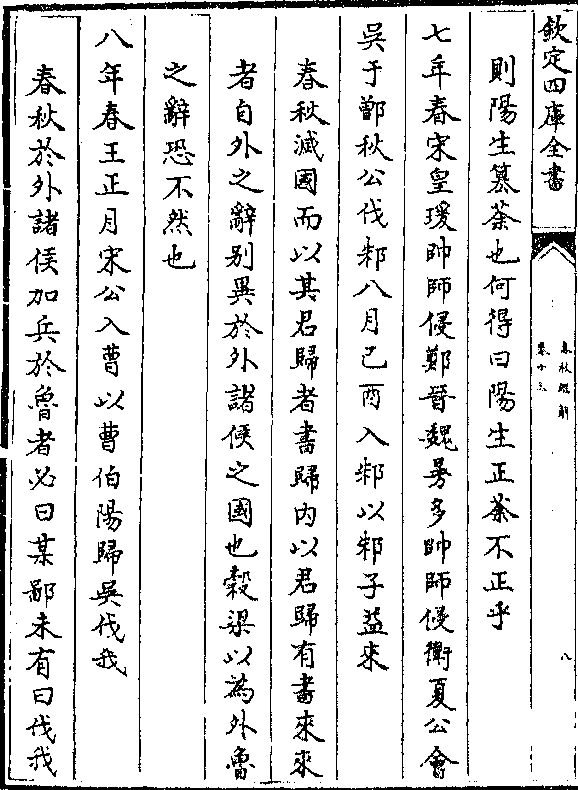 欽定四庫全書
春秋經解
卷十二
八
則陽生簒荼也何得曰陽生正荼不正乎
七年春宋皇瑗帥師侵鄭晉魏曼多帥師侵衛夏公會
吳于鄫秋公伐邾八月己酉入邾以邾子益來
春秋滅國而以其君歸者書歸内以君歸有書來來
者自外之辭别異於外諸侯之國也穀梁以為外魯
之辭恐不然也
八年春王正月宋公入曹以曹伯陽歸吳伐我
春秋於外諸侯加兵於魯者必曰某鄙未有曰伐我